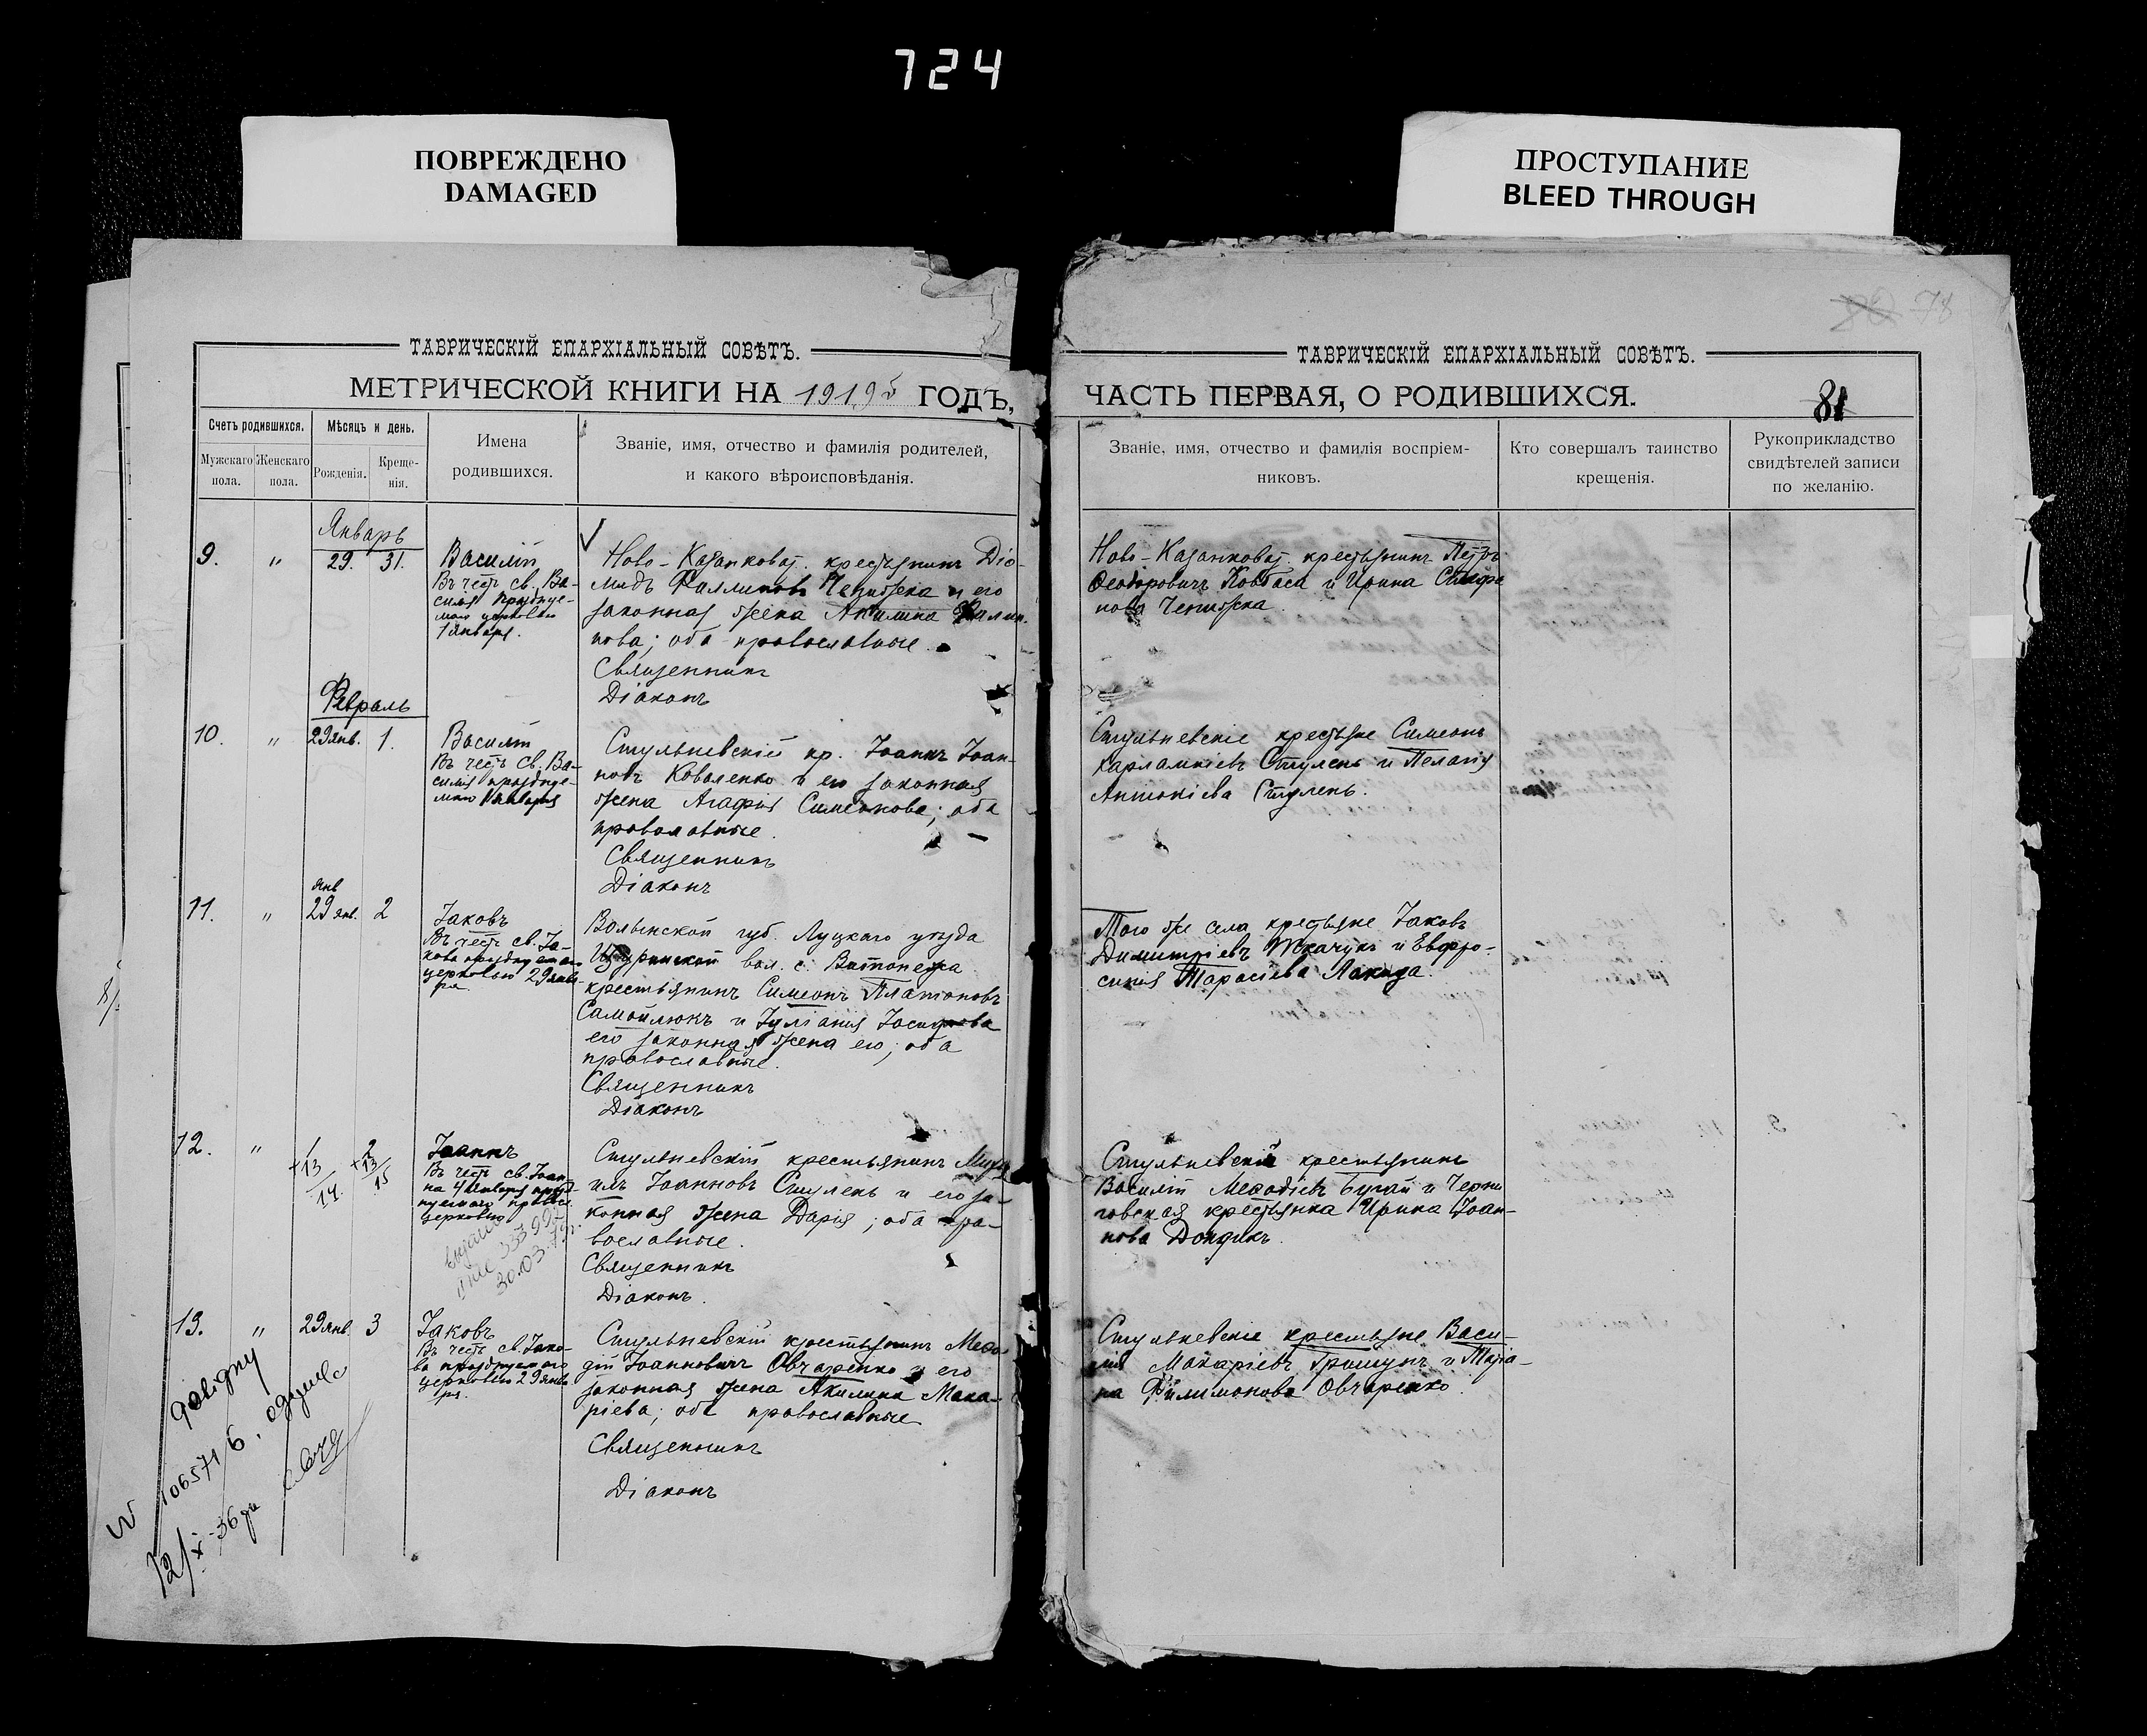 724
ПОВРЕЖДЕНО
DAMAGED
ПРОСТУПАНИЕ
BLEED THROUGH
78
ТАВРИЧЕСКІЙ ЕПАРХІАЛЬНЫЙ СОВѢТЪ.
МЕТРИЧЕСКОЙ КНИГИ НА 1919 ГОДЪ,
Счетъ родившихся.
Мужскаго пола.
Женскаго пола.
Мѣсяцъ и день.
Рожденія.
Креще-
нія.
Имена
родившихся.
Званіе, имя, отчество и фамилія родителей,
и какого вѣроисповѣданія.
Январь
9. " 29. 31.
Василій
Въ честь св. Ва-
силія праздnуе-
маго церковью
1 января.
Ново-Казанковск. крестьянинъ Діо-
мидъ Филлиповъ Чепижека и его
законная жена Акилина
нова; оба православные.
Священникъ
Діаконъ
Февраль
10. " 29 янв. 1.
Василій
Въ честь св. Ва-
силія праздnуе-
маго 1 января
Стульневскій кр. Іоаннъ Іоан-
новъ Коваленко и его законная
жена Агафія Симеонова; оба
православные.
Священникъ
Діаконъ
янв
11. " 29 янв. 2
Іаковъ
Въ честь св. Іа-
кова празднуемаго
церковью 29 янва-
ря.
Волынской губ. Луцкаго уѣзда
вол. с.
крестьянинъ Симеонъ Платоновъ
Самойлюкъ и Іуліанія Іосифова
его законная жена его; оба
православные.
Священникъ
Діаконъ
12. " 1 2
13 13
14 15
Іоаннъ
Въ честь св. Іоан-
на
церковью
333992
30.03.79г.
Стульневскій крестьянинъ Миха
илъ Іоанновъ Стулень и его за-
конная жена Дарія; оба пра-
вославные.
Священникъ
Діаконъ.
13. " 29 янв. 3
Іаковъ
Въ честь св. Іако-
ва празднуемаго
церковью 29 янва-
ря.
Стульневскій крестьянинъ Меѳо-
дій Іоанновичъ Овчаренко и его
законная жена Акилина Мака-
ріева; оба православные
Священникъ
Діаконъ
106571
12/X-36
ТАВРИЧЕСКІЙ ЕПАРХІАЛЬНЫЙ СОВѢТЪ.
ЧАСТЬ ПЕРВАЯ, О РОДИВШИХСЯ.
81
Званіе, имя, отчество и фамилія воспріем-
никовъ.
Кто совершалъ таинство
крещенія.
Рукоприкладство
свидѣтелей записи
по желанію.
Ново-Казанковск. крестьянинъ Петръ
Ѳеодоровичъ Ковбаса и Ирина Стефа
нова Чепижека.
Стульневскіе крестьяне Симеонъ
Харлампіевъ Стулень и Пелагія
Антоніева Стулень.
Того же села крестьяне Іаковъ
Димитріевъ Ткачукъ и Евфро-
синія Тарасіева Лакида.
Стульневскій крестьянинъ
Василій Меѳодіевъ Бугай и Черни
говская крестьянка Ирина Іоан-
нова Дондикъ.
Стульневскіе крестьяне Васи-
лій Макаріевъ и Татіа-
на Филимонова Овчаренко.